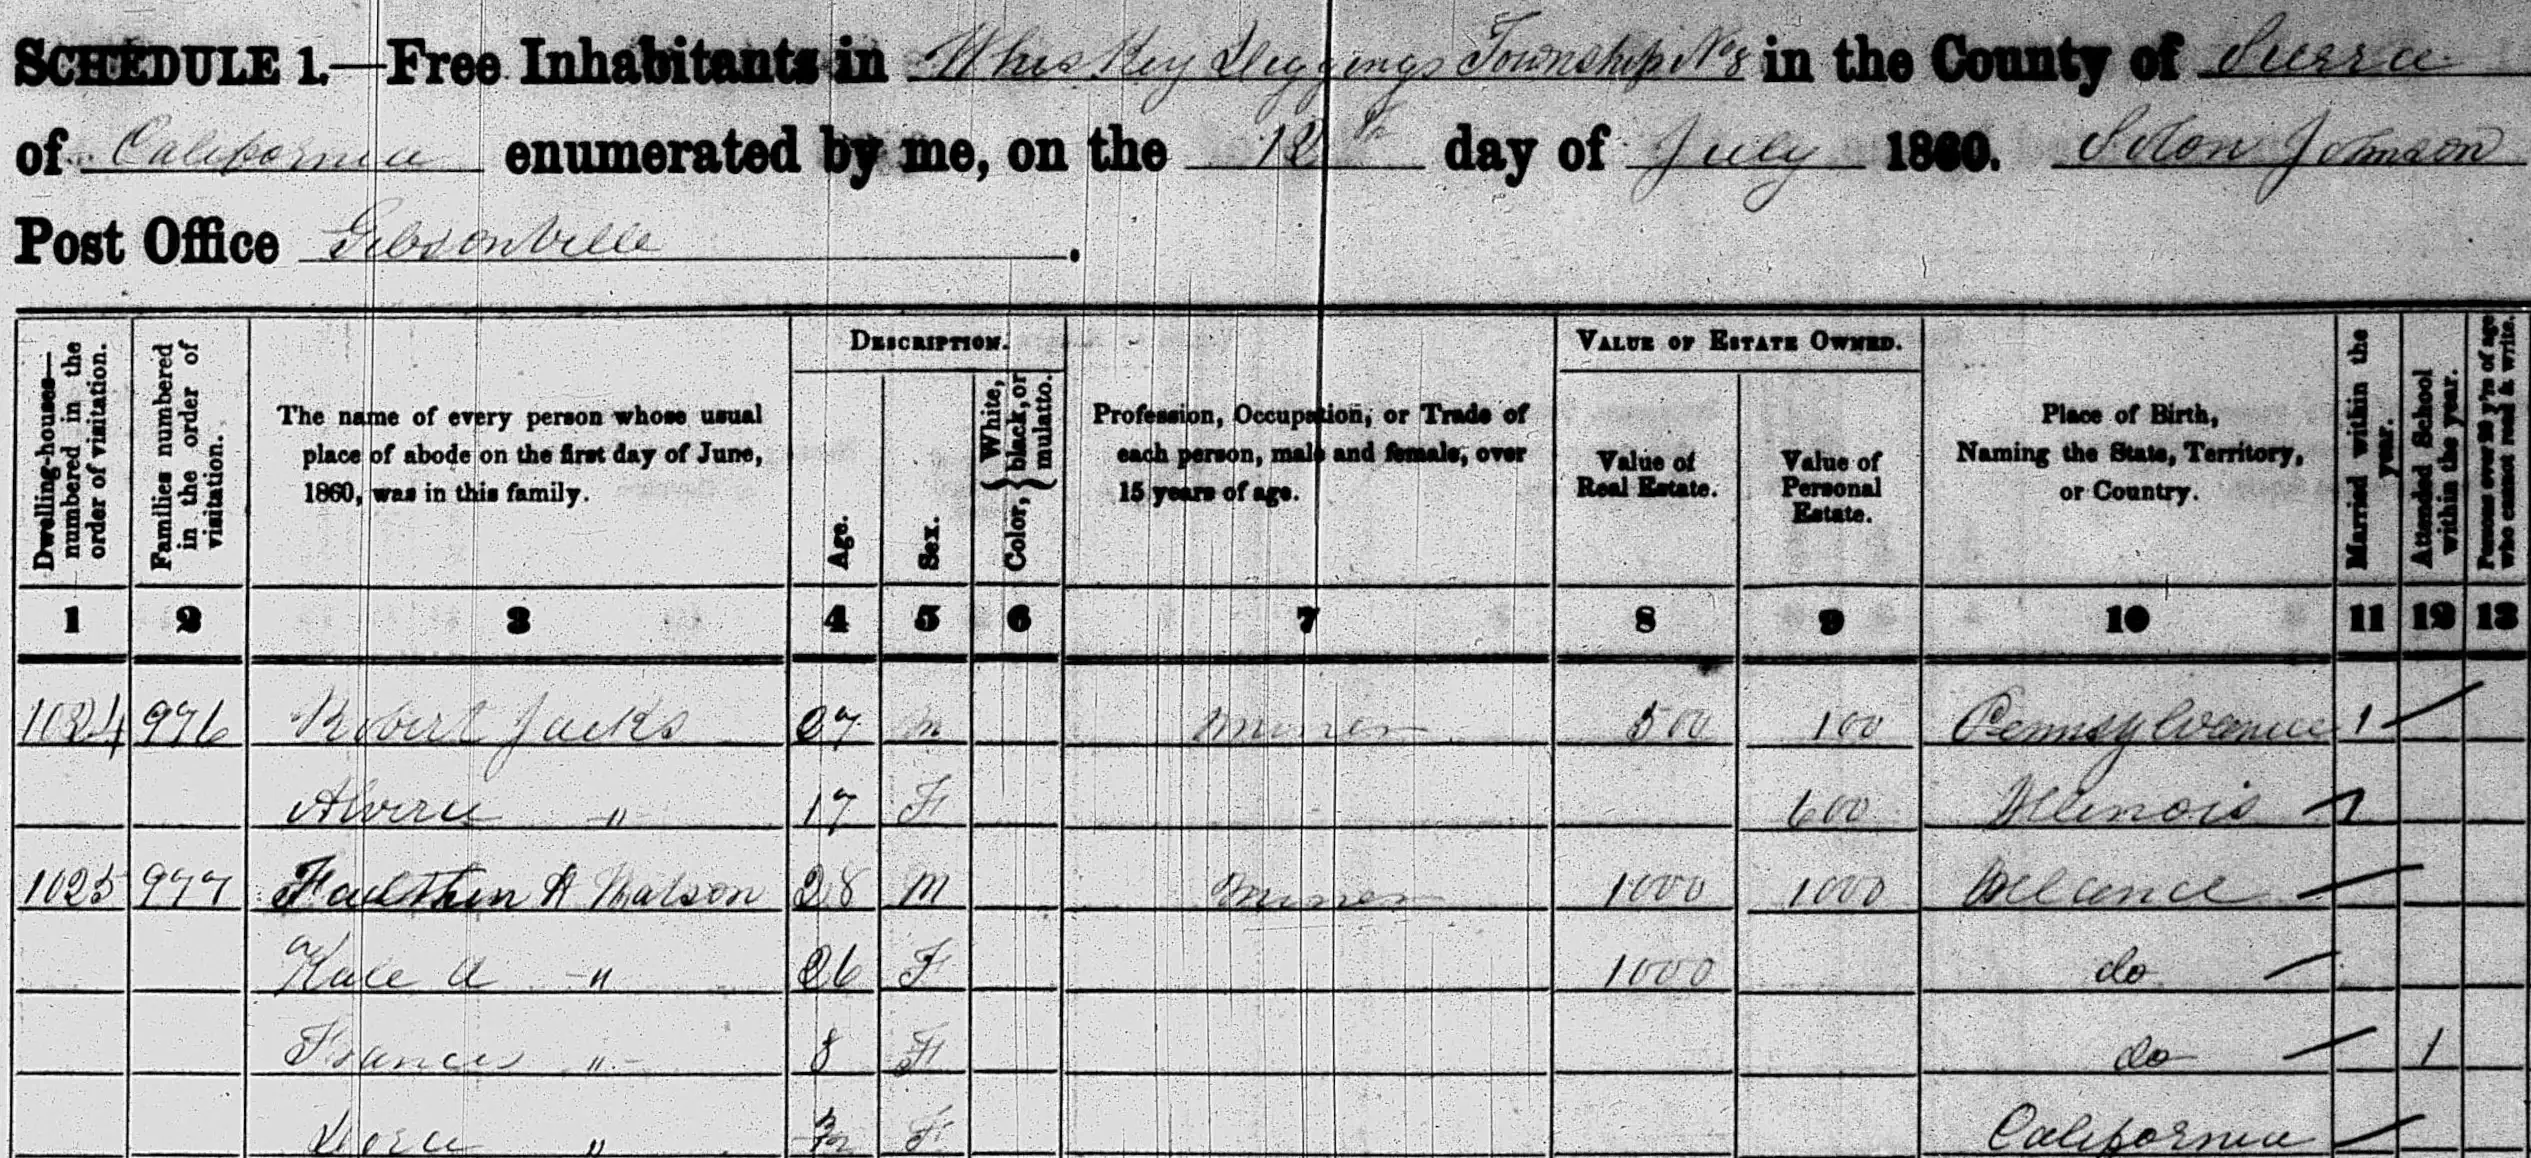 SCHEDULE 1.—Free Inhabitants in Whiskey Diggings Township No 8 in the County of Sierra
of California enumerated by me, on the 12th day of July 1860. Solon Johnson
Post Office Gibsonville.
DESCRIPTION. VALUE OF ESTATE OWNED.
Dwelling-houses—numbered in the order of visitation.
Families numbered in the order of visitation.
The name of every person whose usual place of abode on the first day of June, 1860, was in this family.
Age.
Sex.
Color, { White, black, or mulatto.
Profession, Occupation, or Trade of each person, male and female, over 15 years of age.
Value of Real Estate.
Value of Personal Estate.
Place of Birth, Naming the State, Territory, or Country.
Married within the year.
Attended School within the year.
Persons over 20 y'rs of age who cannot read & write.
1 2 3 4 5 6 7 8 9 10 11 12 13
1024 976 Robert Jacks 27 m miner 500 100 Pennsylvania 1
Alvira " 17 F 600 Illinois 1
1025 977 A Watson 28 M miner 1000 1000
Kate A " 26 F 1000 do
Frances " 8 F do 1
Dora " F California